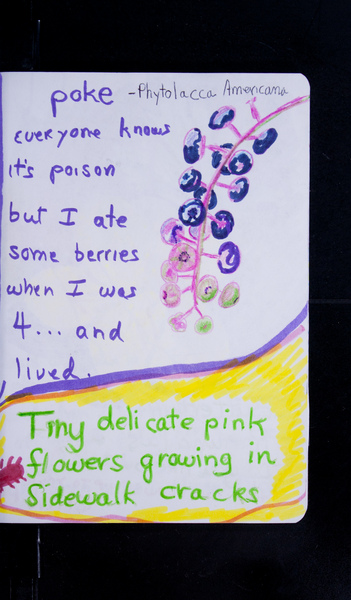 poke - Phytolacca Americana
everyone knows
it's poison
but I ate
some berries
when I was
4... and
lived.
Tiny delicate pink
flowers growing in
Sidewalk cracks